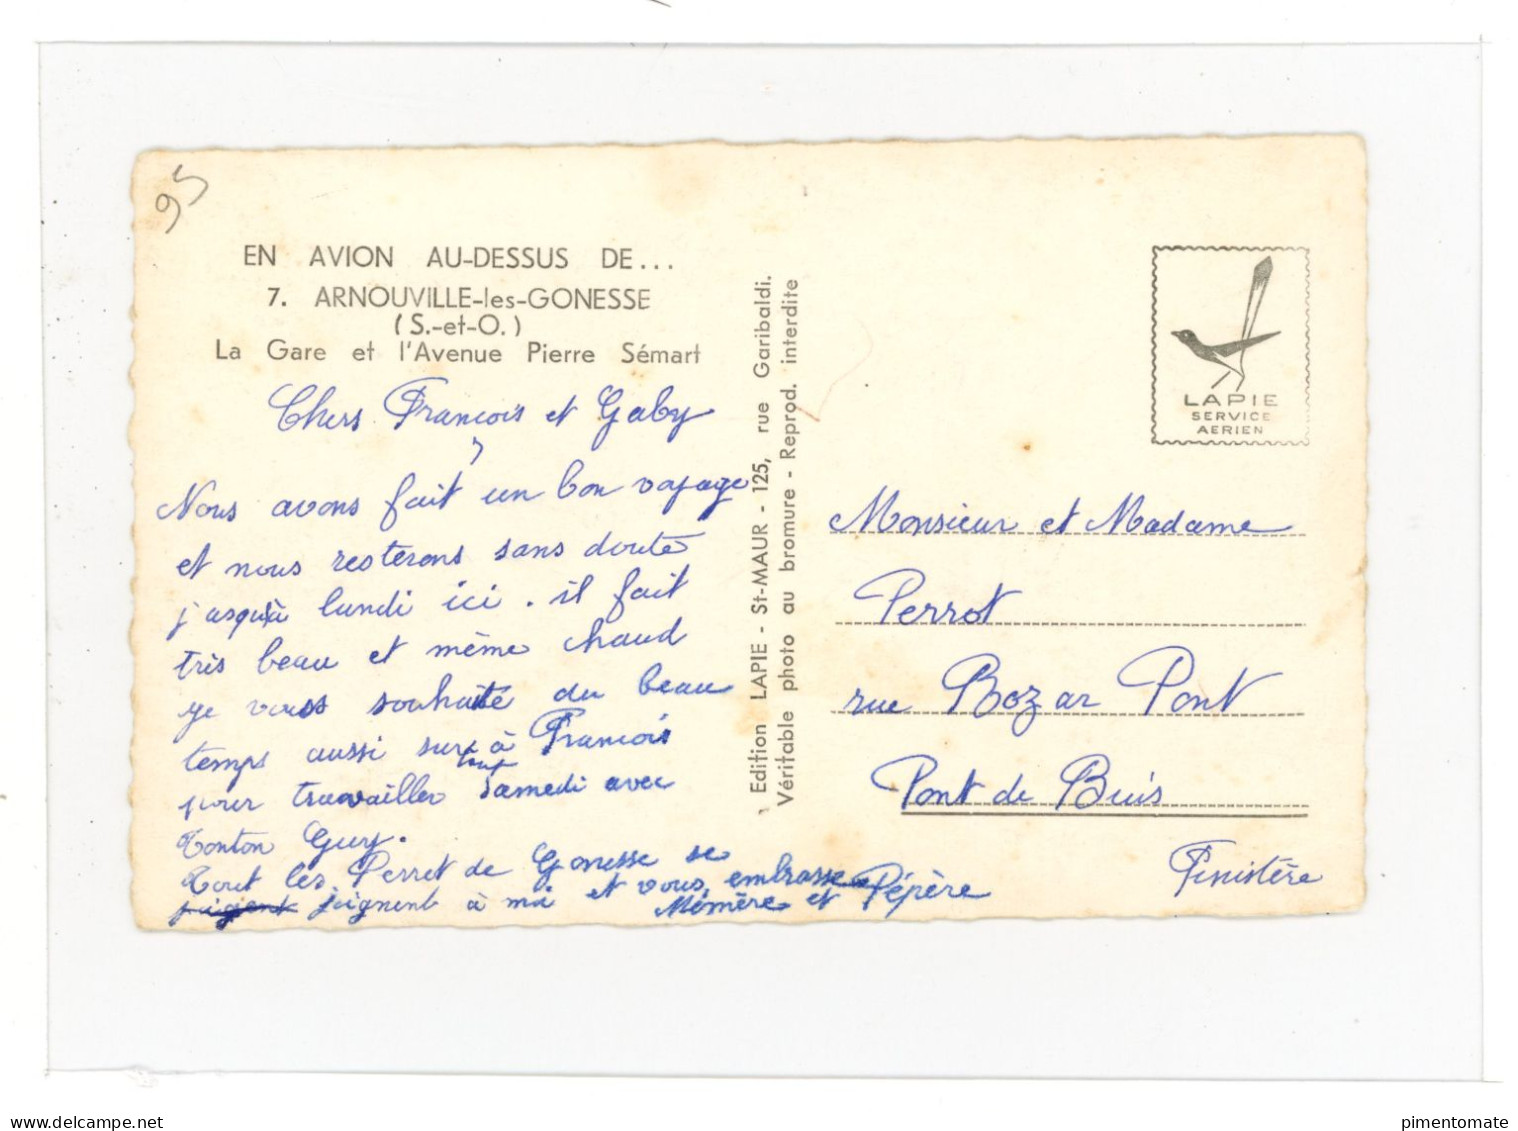 95
EN AVION AU-DESSUS DE...
7. ARNOUVILLE-les-GONESSE
(S.-et-O.)
La Gare et l'Avenue Pierre Sémart
Chers François et Gaby
Nous avons fait un bon voyage
et nous resterons sans doute
jusqu'à lundi ici. il fait
très beau et même chaud
je vous souhaite du beau
temps aussi surtout à François
pour travailler Samedi avec
Tonton Guy.
Tout les Perret de Gonesse se
joignent à moi et vous embrasse
Mémère et Pépère
Edition LAPIE - St-MAUR - 125, rue Garibaldi.
Véritable photo au bromure - Reprod. interdite
LAPIE
SERVICE
AERIEN
Monsieur et Madame
Perrot
rue Bozar Pont
Pont de Buis
Finistère
pimentomate